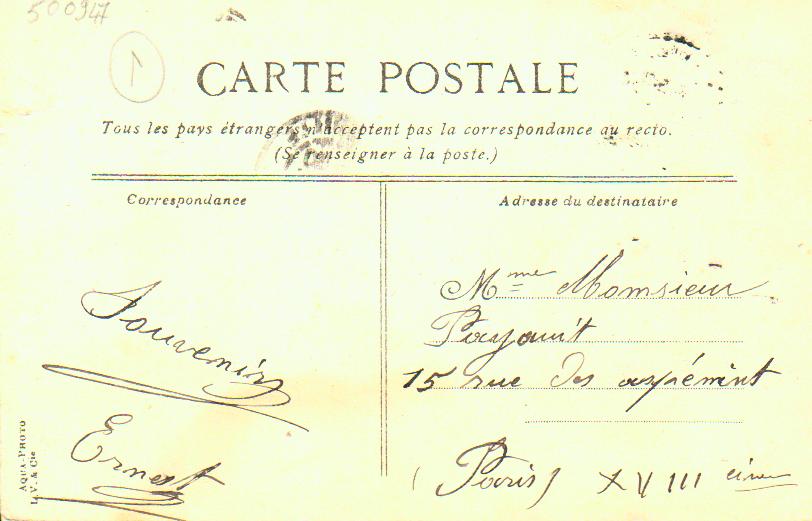 500947
1
CARTE POSTALE
Tous les pays étrangers n'acceptent pas la correspondance au recto.
(Se renseigner à la poste.)
Correspondance
Souvenir
Ernest
AQUA-PHOTO
L. V. & Cie
Adresse du destinataire
Mme Monsieur
15 rue des
(Paris) XVIII ème